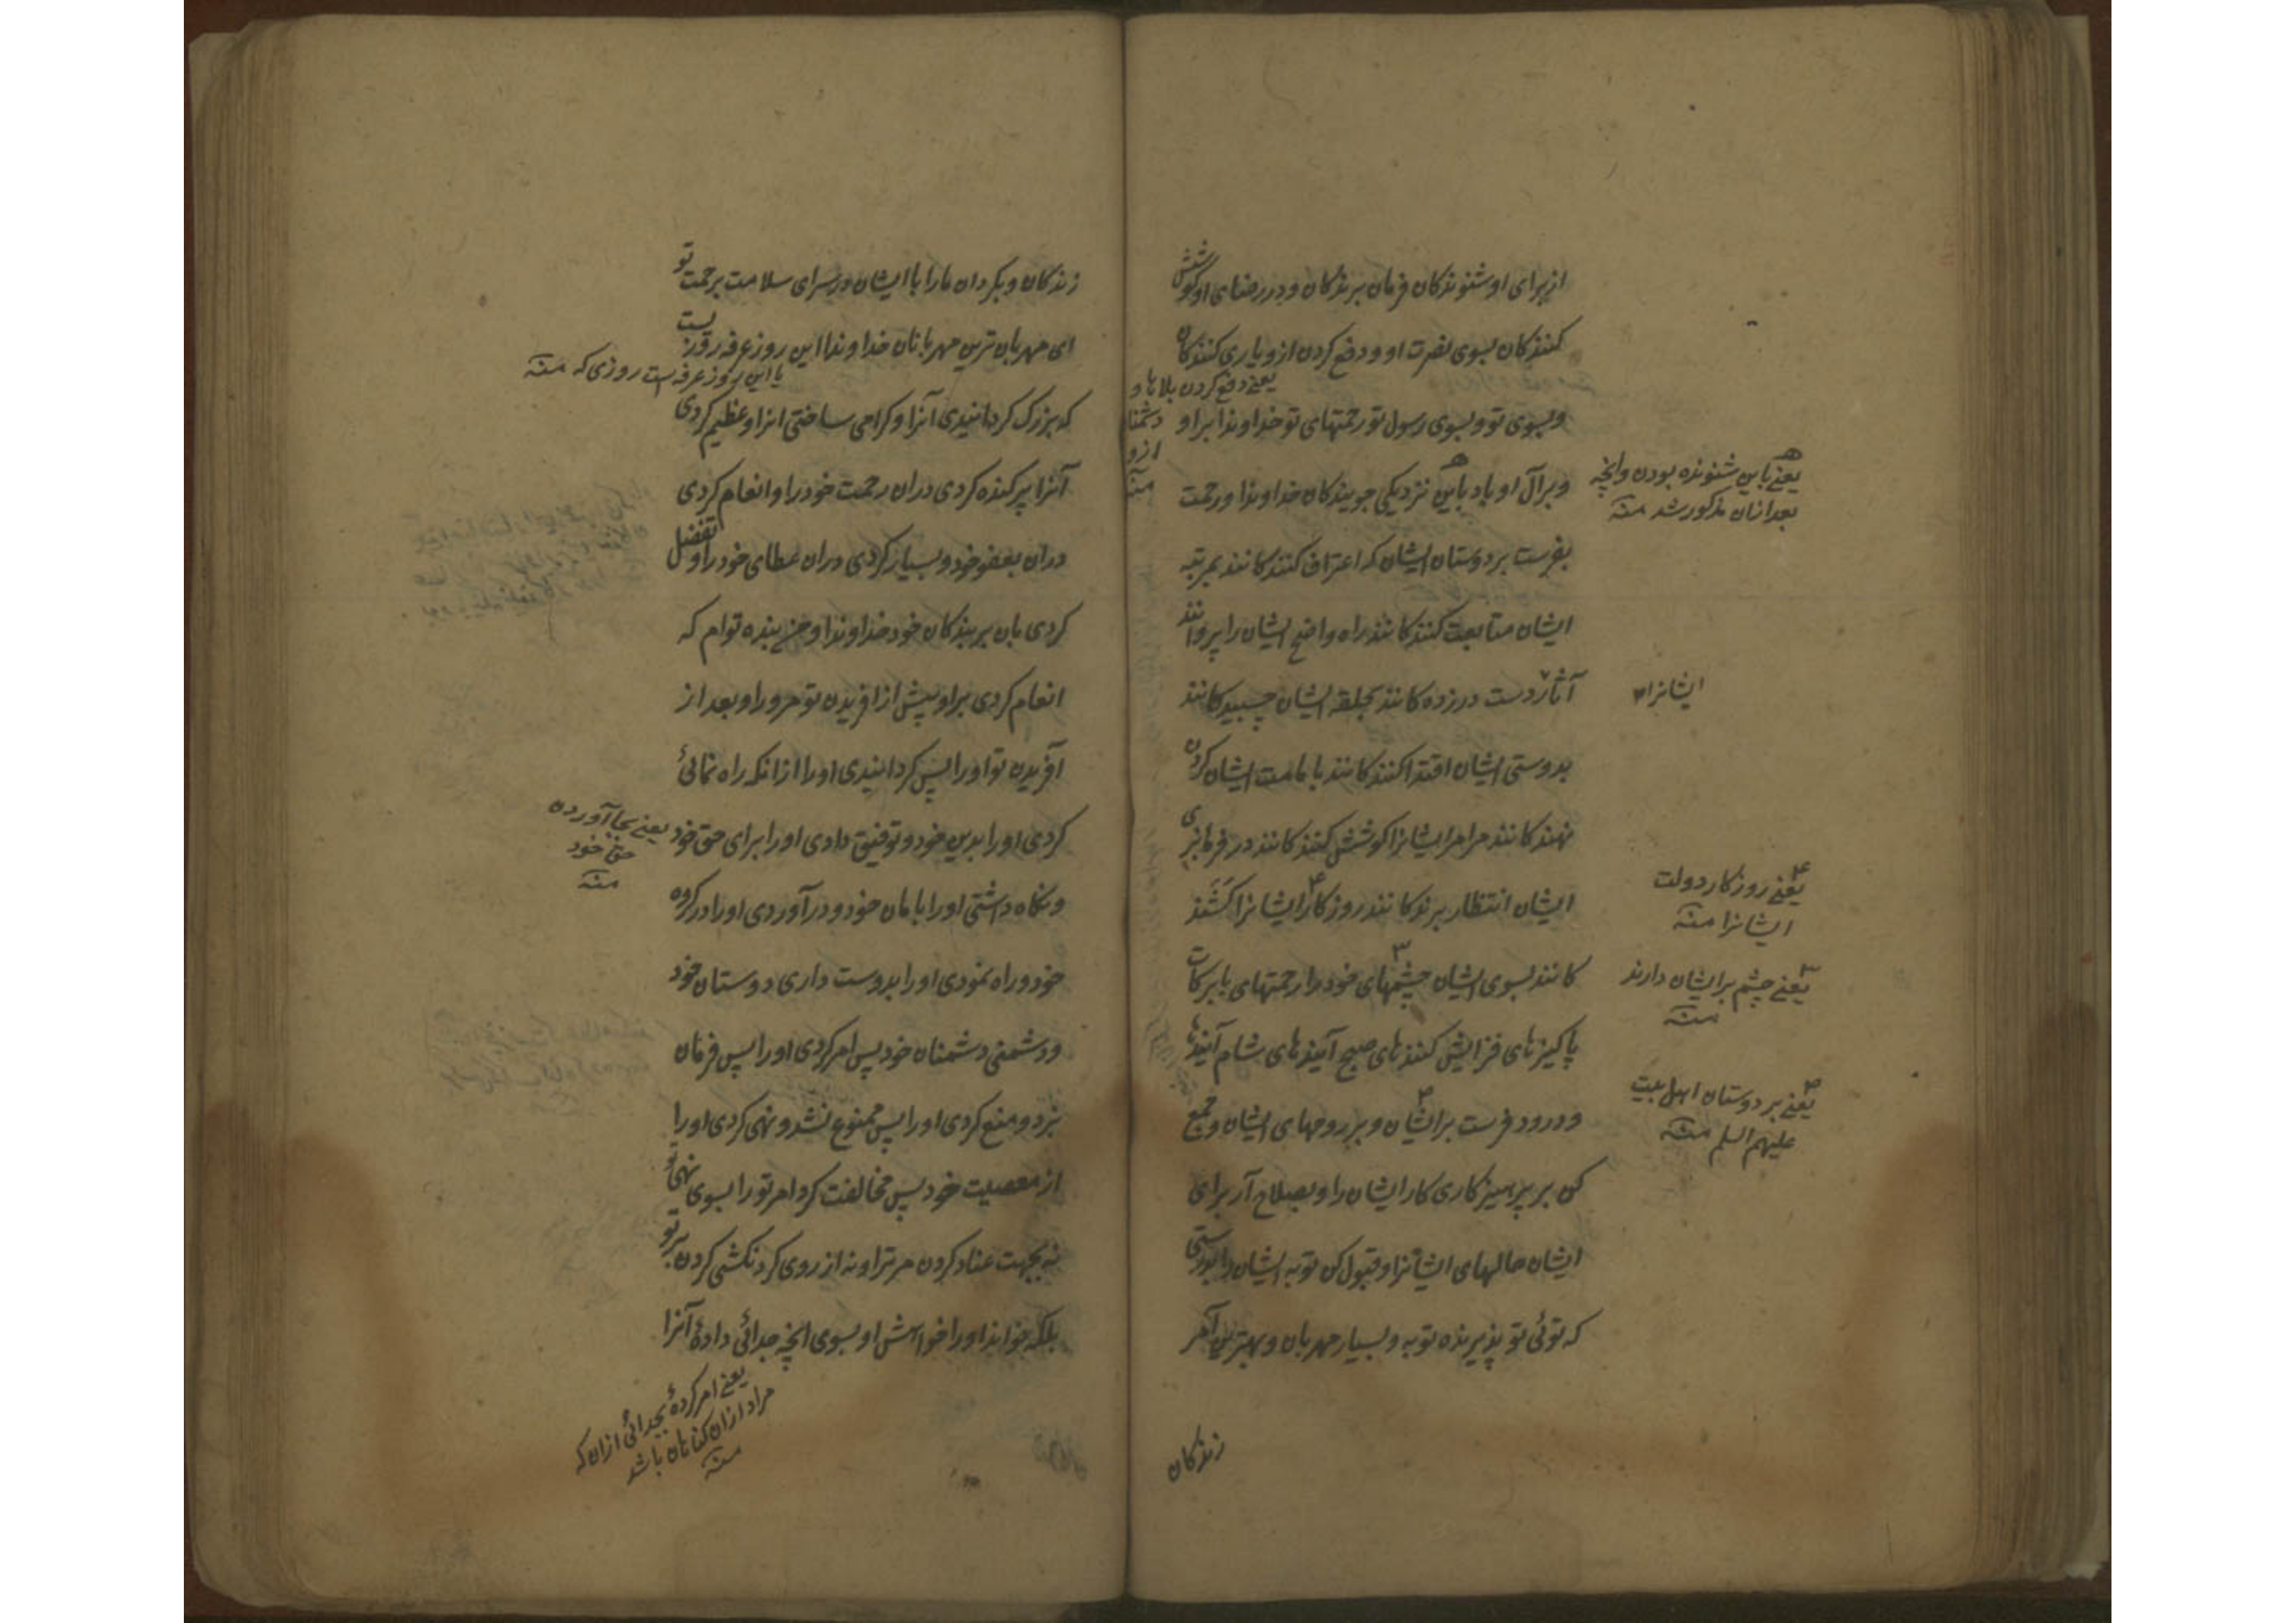 از برای او شنوندکان فرمان برندکان و در رضای او کوشش
کنندکان بسوی نصرت او و دفع کردن ازو یاری کنندکان
یعنے دفع کردن بلاها و
دشمنا
ازو
منہ
و بسوی تو و بسوی رسول تو رحمتهای تو خداوندا بر او
و بر آل او باد باین نزدیکی جویندکان خداوندا و رحمت
یعنے باین شنونده بودن وانچه
بعد ازان مذکور شد منہ
بفرست بر دوستان ایشان که اعتراف کنندکانند بمرتبه
ایشان متابعت کنندکانند راه واضح ایشان را پروانند
آثار دست درزده کانند بحلقه ایشان چسبیدکانند
ایشانرا
بدوستی ایشان اقتدا کنندکانند بامامت ایشان کردن
نهندکانند مر امر ایشانرا کوشش کنندکانند در فرمانبری
ایشان انتظار برندکانند روزکار ایشانرا کَشَند
یعنے روزکار دولت
ایشانرا منہ
کانند بسوی ایشان چشمهای خود را رحمتهای بابرکات
یعنے چشم بر ایشان دارند
منہ
پاکیزهای فزایش کنندهای صبح آیندهای شام آیندها
و درود فرست بر ایشان و بر روحهای ایشان و جمع
یعنے بر دوستان اهل بیت
علیهم السلم منہ
کن بر پرهیزکاری کار ایشان را و بصلاح آر برای
ایشان حالهای ایشانرا و قبول کن توبه ایشان را بدرستی
که توئی تو پذیرنده توبه و بسیار مهربان و بهترین آمر
زندکان
زندکان و بکردان مارا با ایشان در سرای سلامت برحمت تو
ای مهربان ترین مهربانان خداوندا این روز عرفه روزیست
یا این روز عرفه است روزی که منہ
که بزرک کردانیدی آنرا و کرامی ساختی انرا و عظیم کردی
آنرا پرکنده کردی دران رحمت خود را و انعام کردی
دران بعفو خود و بسیار کردی دران عطای خود را و تفضل
کردی بان بر بندکان خود خداوندا و من بنده توام که
انعام کردی بر او پیش از افریدن تو مر ورا و بعد از
آفریدن تو اورا پس کردانیدی اورا ازانکه راه نمائی
کردی اورا بدین خود و توفیق دادی اورا برای حق خود
یعنے بجا آوردن
حق خود
منہ
و نکاه داشتی اورا بامان خود و درآوردی اورا در کروه
خود و راه نمودی اورا بدوست داری دوستان خود
و دشمنی دشمنان خود پس امر کردی اورا پس فرمان
نبرد و منع کردی اورا پس ممنوع نشد و نهی کردی اورا
از معصیت خود پس مخالفت کرد امر تورا بسوی نهی تو
نه بجهت عناد کردن مر ترا و نه از روی کردنکشی کردن بر تو
بلکه خواند اورا خواهش او بسوی انچه جدائی دادهٔ آنرا
یعنے امر کردهٔ بجدائی ازان که
مراد ازان کناهان باشد
منہ